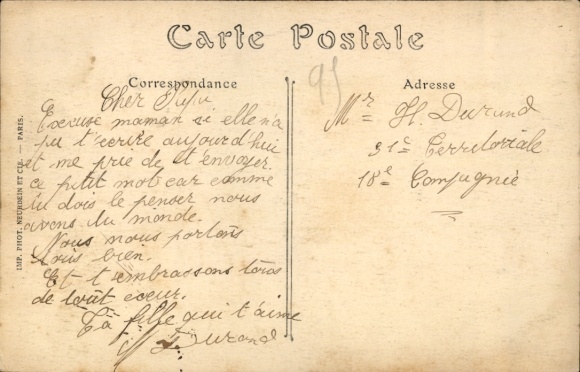 Carte Postale
Correspondance
Cher
Excuse maman si elle n'a
pu t'écrire aujourd'hui
et me prie de t'envoyer
ce petit mot car comme
tu dois le penser nous
avons du monde.
Nous nous portons
tous bien.
Et t'embrassons tous
de tout coeur.
Ta fille qui t'aime
Durand
95
Adresse
Mr H. Durand
31e Territoriale
18e Compagnie
IMP. PHOT. NEURDEIN ET CIE. — PARIS.